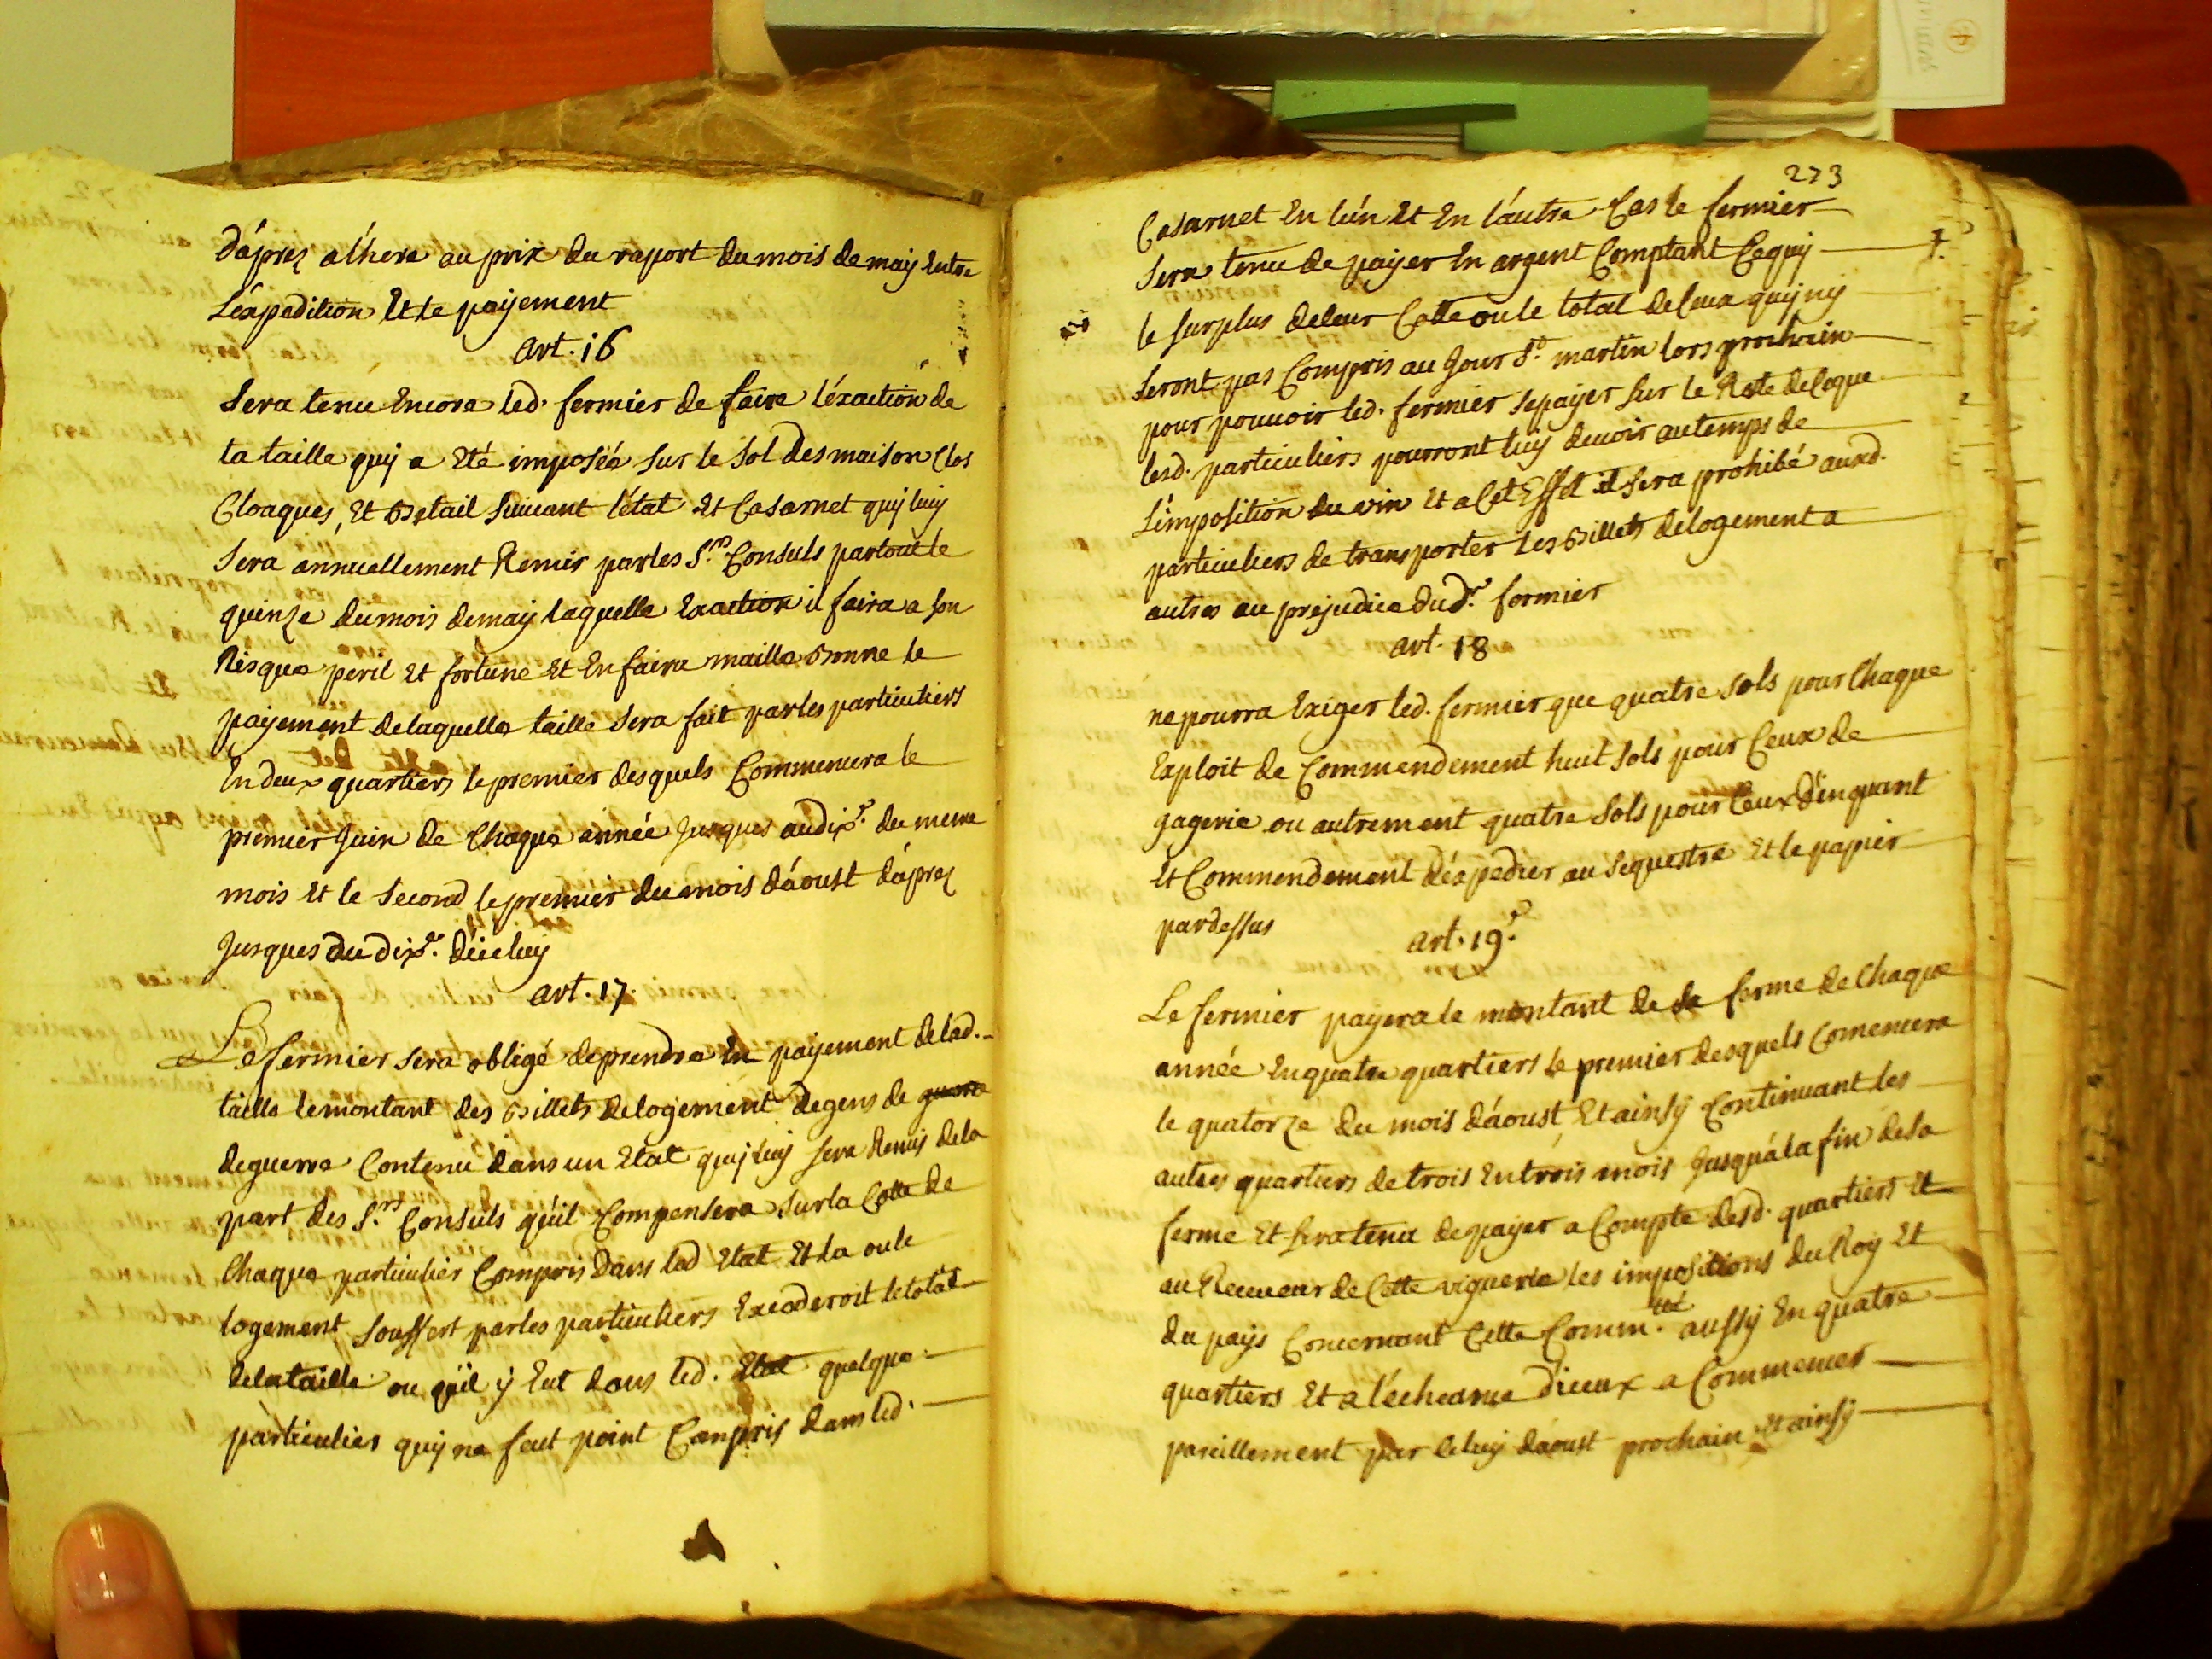 d'áprez a l'hera au prix du raport du mois de may Entre
L'éxpedition Et le payement
art. 16
Sera tenu Encore led. fermier de faire l'éxaction de
la taille quy a Eté imposéé sur le sol des maison clos
Cloaques, Et Betail suivant l'état Et Casarnet quy luy
Sera annuellement Remis par les S.rs Consuls par tout le
quinze du mois de may laquelle Exaction il faira a son
Risque peril Et fortune Et En faira maille bonne le
payement de laquelle taille sera fait par les particuliers
En deux quartiers le premier desquels Commencera le
premier Juin de Chaque année Jusques au dix.e du meme
mois Et le Second le premier du mois d'áoust d'áprez
Jusques au dix.e d'iceluy
art. 17.
Le fermier sera obligé de prendre En payement de lad.
taille le montant des Billets de logement de gens de guerre
de guerre Contenu dans un Etat quy luy sera Remis de la
part des S.rs Consuls qu'il Compensera sur la Cotte de
Chaque particulier Compris dans led Etat Et la ou le
logement souffert par les particuliers Excederoit le total
de la taille ou qu'il y Eut dans led. Etat quelque
particulier quy ne feut point Compris dans led.
273
Casarnet En l'ún Et En l'áutre Cas le fermier
Sera tenu de payer En argent Comptant Ce quy
le surplus de leur Cotte ou le total de Ceux quy ny
seront pas Compris au Jour S.t martin lors prochain
pour pouvoir led. fermier se payer sur le Reste de Ce que
lesd. particuliers pourront luy devoir au temps de
L'imposition du vin Et a Cet Effet il sera prohibé auxd.
particuliers de transporter les Billets de logement a
autres au préjudice dud.t fermier
art. 18
ne pourra Exiger led. fermier que quatre sols pour Chaque
Exploit de Commendement huit sols pour Ceux de
gagerie ou autrement quatre sols pour Ceux d'inquant
Et Commendement d'éxpedier au sequestre Et le papier
par dessus
art. 19.e
Le fermier payera le montant de sa ferme de Chaque
année En quatre quartiers le premier desquels Comencera
le quatorze du mois d'áoust Et ainsy Continuant les
autres quartiers de trois En trois mois Jusqu'á la fin de sa
ferme Et sera tenu de payer a Compte desd. quartiers Et
au Receveur de Cette viguerie les impositions du Roy Et
du pays Concernant Cette Comm.té aussy En quatre
quartiers Et a l'écheance d'iceux a Commencer
pareillement par Celuy d'aoust prochain Et ainsy